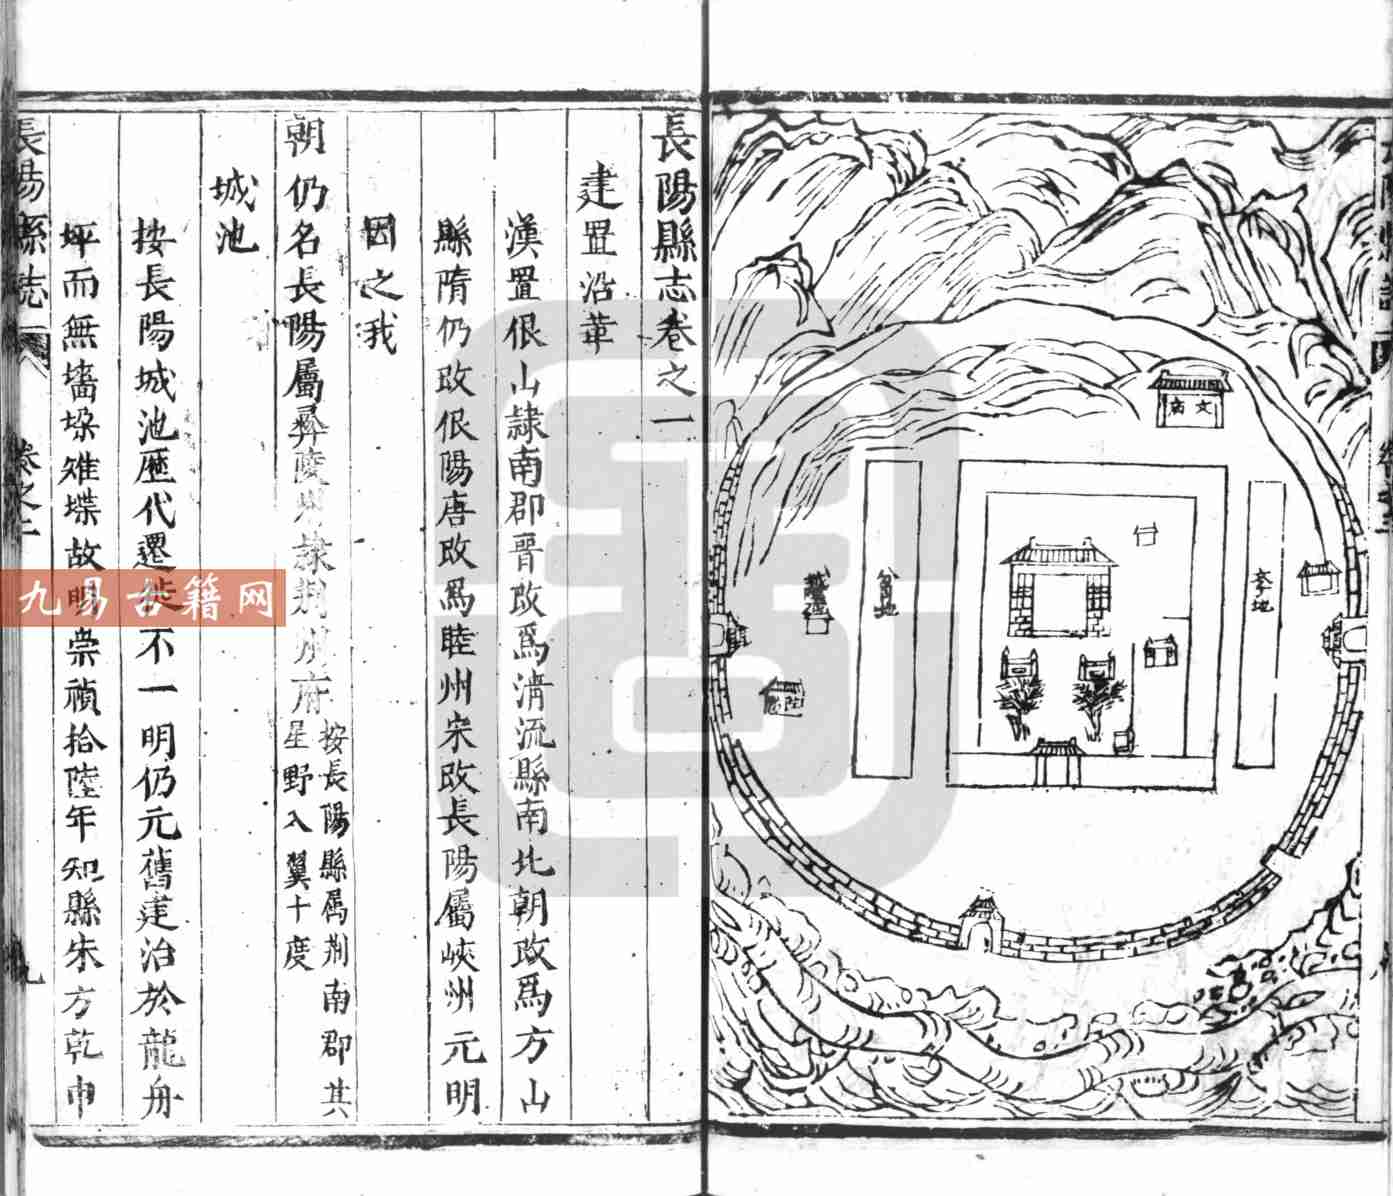 文廟
長陽縣志卷之一
建置沿革
漢置佷山隸南郡晉改爲清流縣南北朝改爲方山
縣隋仍改佷陽唐改爲睦州宋改長陽屬峽州元明
因之我
朝仍名長陽屬彝陵州隸荆州府
按長陽縣属荆南郡其
星野入翼十度
城池
按長陽城池歷代遷徙不一明仍元舊建治於龍舟
坪而無墻垜雉堞故明崇禎拾陸年知縣朱方乾申
長陽縣志
卷之一
九易古籍网